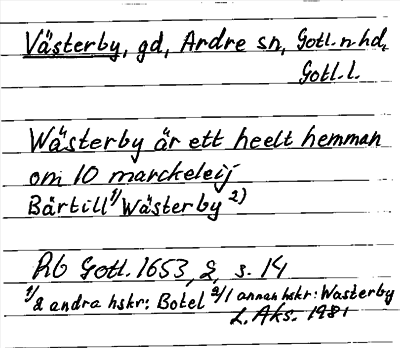 Västerby, gd, Andre sn, Gotl. n. hd,
Gotl. l.
Wästerby är ett heelt hemman
om 10 marckeleij
Bärtill 1) Wästerby 2)
Rb Gotl. 1653, 2, s. 14
1) 2 andra hskr: Botel 2) 1 annan hskr: Wasterby
L. Aks. 1981